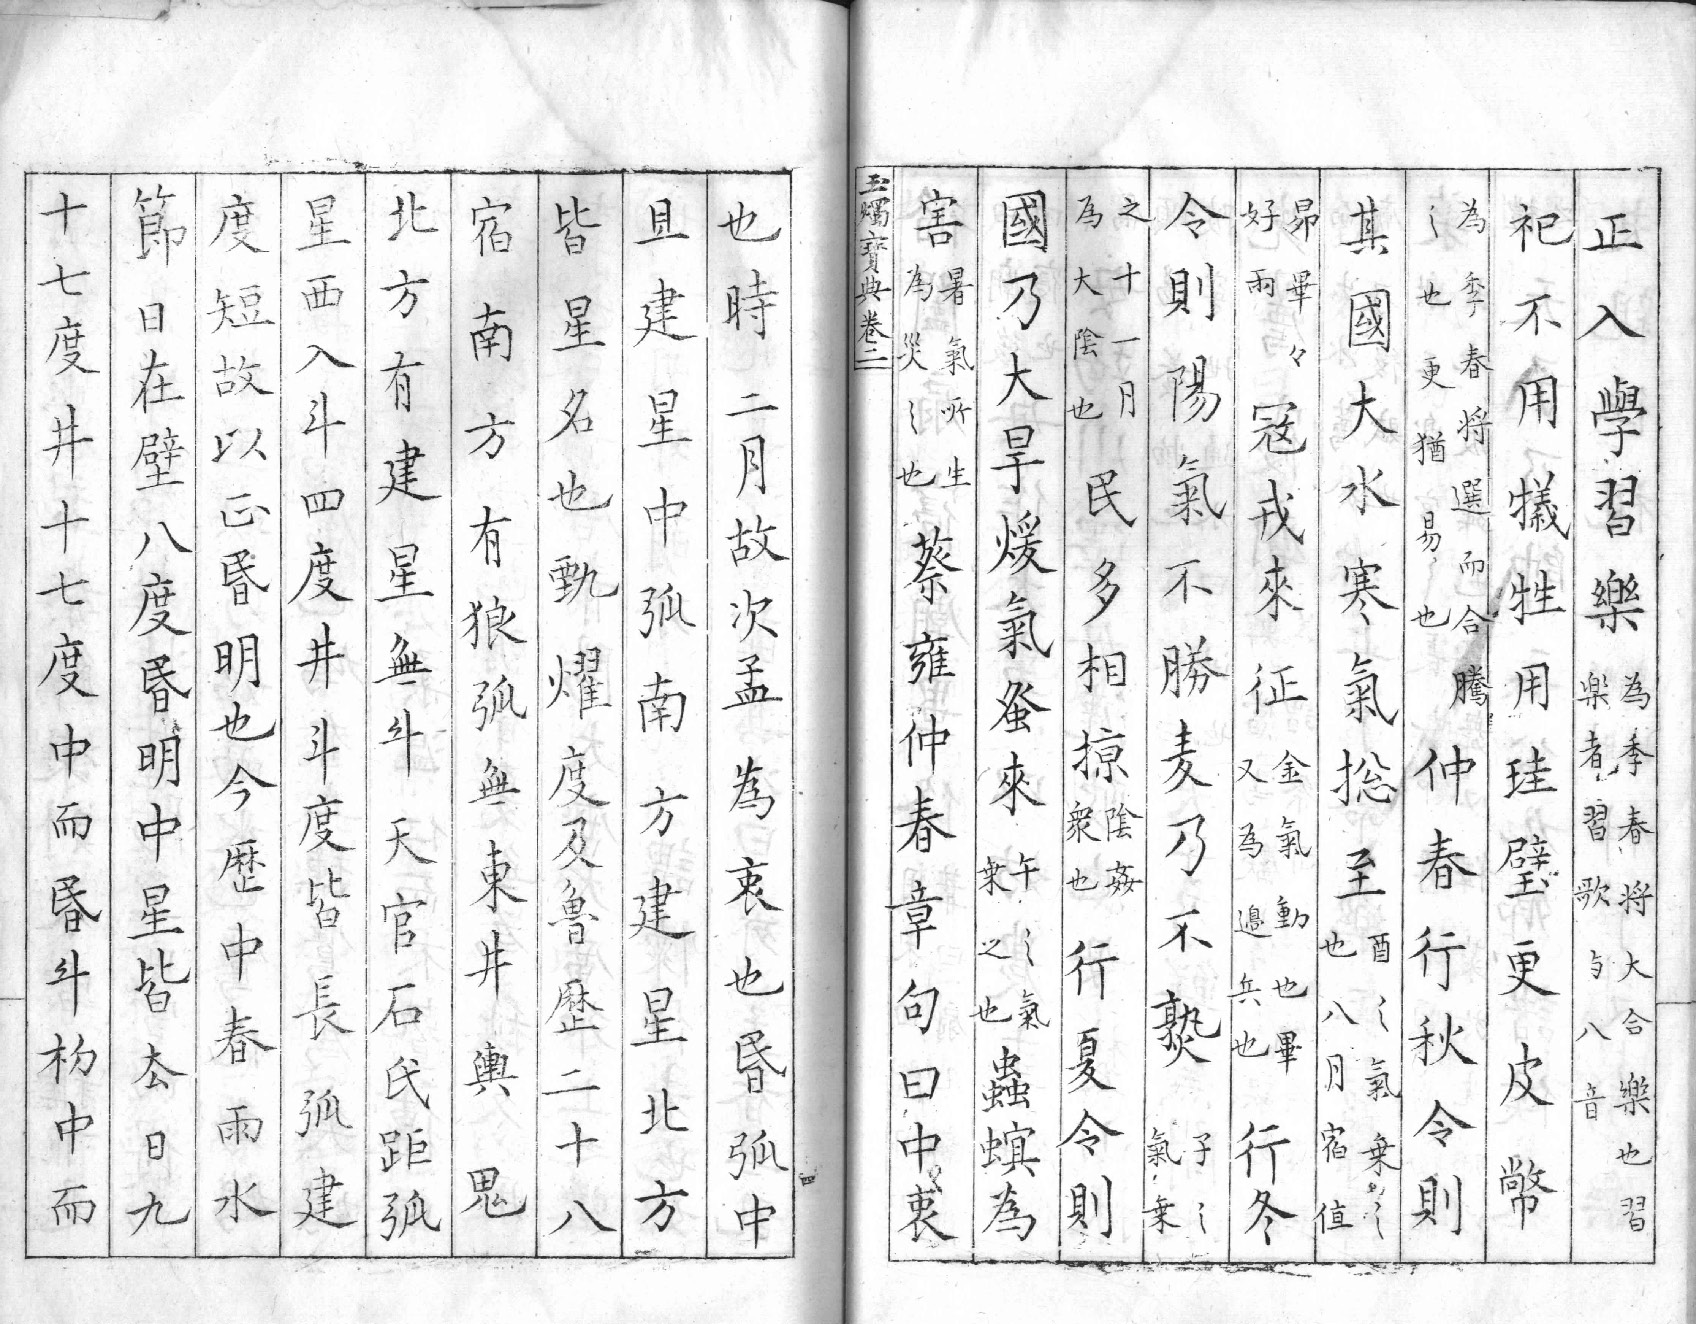 正入學習樂為季春将大合樂也習楽者習歌与八音
祀不用犠牲用珪璧更皮幣
為季春将選而合騰〻也更猶易也仲春行秋令則
其國大水寒氣総至酉〻氣乗〻也八月宿值
昴畢々好雨冦戎來征金氣動也畢又為邉兵也行冬
令則陽氣不勝麦乃不熟子〻氣乗
之十一月為大陰也民多相掠陰姦衆也行夏令則
國乃大旱煖氣蚤來午〻氣乗之也蟲螟為
害暑氣所生為災〻也蔡雍仲春章句曰中衷
玉燭寶典卷二
也時二月故次孟為衷也昬弧中
且建星中弧南方建星北方
皆星名也甄燿度及魯歷二十八
宿南方有狼弧無東井輿鬼
北方有建星無斗天官石氏距弧
星西入斗四度井斗度皆長弧建
度短故以正昬明也今歷中春雨水
節日在壁八度昬明中星皆去日九
十七度井十七度中而昬斗初中而
四